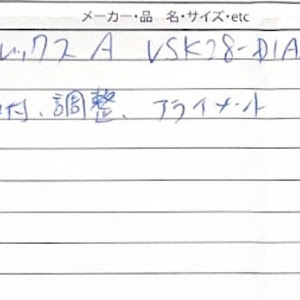 メーカー・品 名・サイズ・etc
レックス A VSK28-D1A
付、調整、アライメント